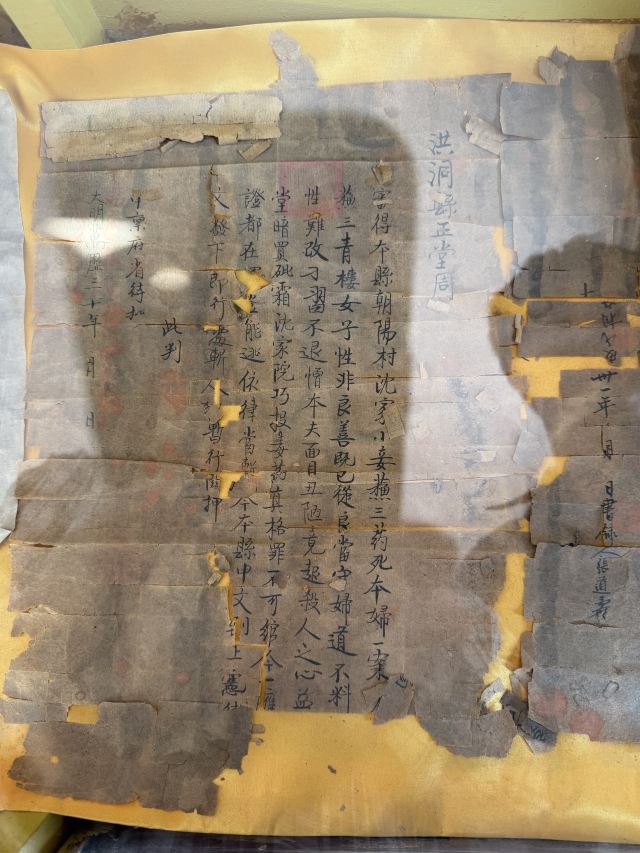 卅一年 月 日書錄人張道
洪洞縣正堂周
審得本縣朝陽村沈家小妾蘓三药死本婦一案人
蘓三青樓女子性非良善既已從良當守婦道不料
性難改刁習不退憎本夫面目丑陋竟起殺人之心並
堂暗買砒霜沈家院巧投毒药真格罪不可綰今一應
證都在能逃依律當斬今本縣申文到上憲
文發下即行處斬人暫行關押
此判
稟右省待扣
大明萬曆三十年 月 日